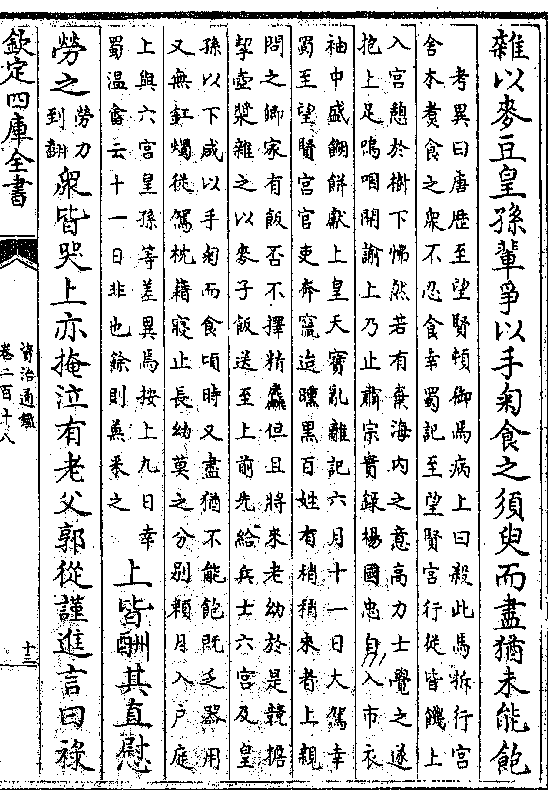 雜以麥豆皇孫輩爭以手匊食之須臾而盡猶未能飽
考異曰唐歴至望賢頓御馬病上曰殺此馬拆行宮
舍木煑食之衆不忍食幸蜀記至望賢宮行從皆饑上
入宮憩於樹下怫然若有棄海内之意高力士覺之遂
抱上足嗚咽開諭上乃止肅宗實録楊國忠自入市衣
袖中盛餬餅獻上皇天寶亂離記六月十一日大駕幸
蜀至望賢宮官吏奔竄迨曛黑百姓有稍稍來者上親
問之卿家有飯否不擇精麤但且將來老幼於是競擔
挈壺漿雜之以麥子飯送至上前先給兵士六宮及皇
孫以下咸以手匊而食頃時又盡猶不能飽既乏器用
又無釭燭從駕枕藉寢止長幼莫之分别賴月入户庭
上與六宮皇孫等差異焉按上九日幸
蜀温畬云十一日非也餘則兼釆之
上皆酬其直慰
勞之
勞力
到翻
衆皆哭上亦掩泣有老父郭從謹進言曰祿
欽定四庫全書
資治通鑑
卷二百十八
十三